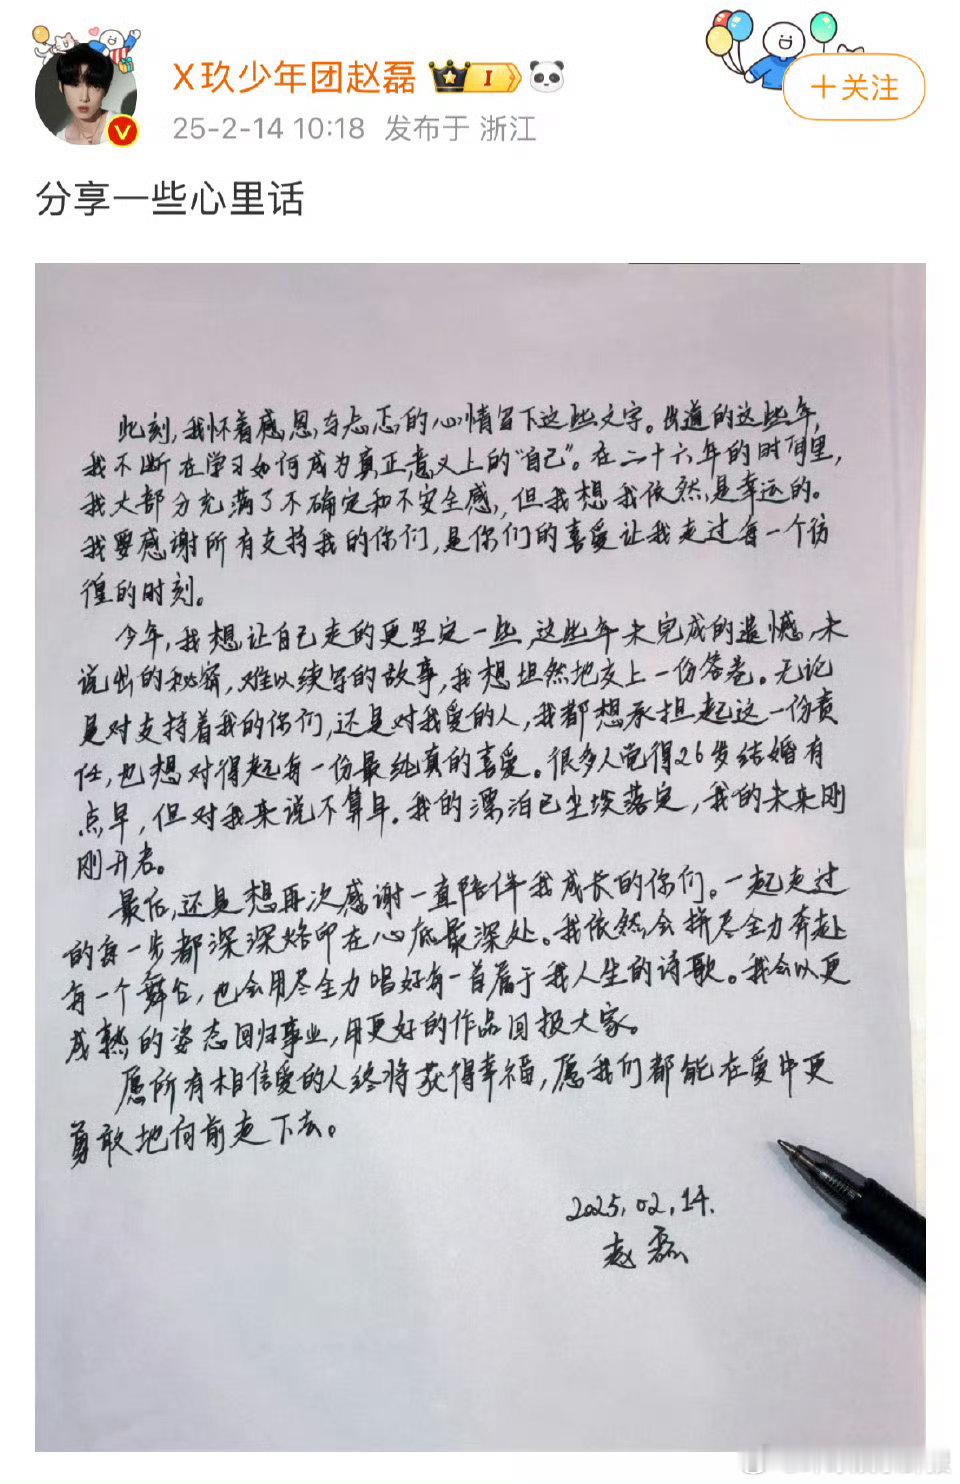 X玖少年团赵磊 I
+关注
25-2-14 10:18 发布于 浙江
分享一些心里话
此刻,我怀着感恩与忐忑的心情留下这些文字。出道的这些年,
我不断在学习如何成为真正意义上的“自己”。在二十六年的时间里,
我大部分充满了不确定和不安全感,但我想我依然是幸运的。
我要感谢所有支持我的你们,是你们的喜爱让我走过每一个彷
徨的时刻。
今年,我想让自己走的更坚定一些,这些年未完成的遗憾,未
说出的秘密,难以续写的故事,我想坦然地交上一份答卷。无论
是对支持着我的你们,还是对我爱的人,我都想承担起这一份责
任,也想对得起每一份最纯真的喜爱。很多人觉得26岁结婚有
点早,但对我来说不算早.我的漂泊已尘埃落定,我的未来刚
刚开始。
最后,还是想再次感谢一直陪伴我成长的你们。一起走过
的每一步都深深烙印在心底最深处。我依然会拼尽全力奔赴
每一个舞台,也会用尽全力唱好每一首属于我人生的诗歌。我会以更
成熟的姿态回归事业,用更好的作品回报大家。
愿所有相信爱的人终将获得幸福,愿我们都能在爱中更
勇敢地向前走下去。
2025.02.14.
赵磊